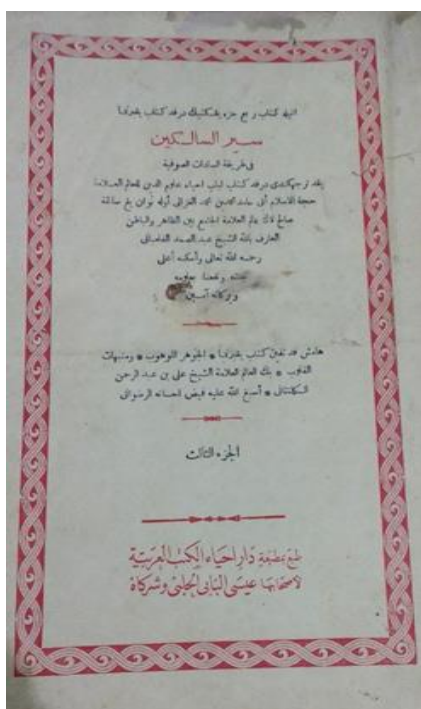 اينيله كتاب ربع جزء يڠكتيك درفد كتاب يڠبرنما
سير السالكين
في طريقة السادات الصوفية
يڠد ترجمهكندي درفد كتاب لباب احياء علوم الدين للعالم العلامة
حجة الاسلام أبي حامد محمد بن محمد الغزالي أوله توان يڠ سالڠة
صالح لاڬ عالم العلامة الجامع بين الظاهر والباطن
العارف بالله الشيخ عبد الصمد الفلمباني
رحمه الله تعالى وأسكنه أعلى
جنته ونفعنا بعلومه
وبركاته آمين
هامش فد تفين كتاب يڠبرنما * الجوهر الموهوب * ومنبهات
القلوب * بڬ العالم العلامة الشيخ علي بن عبد الرحمن
الكلنتاني * أسبغ الله عليه فيض احسانه الرضواني
الجزء الثالث
طبع بمطبعة دار احياء الكتب العربية
لأصحابها عيسى البابي الحلبي وشركاه